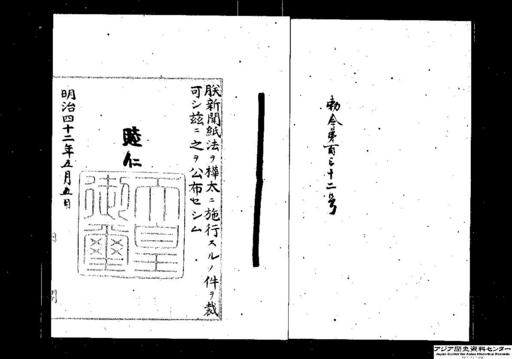 勅令第百三十二号
朕新聞紙法ヲ樺太ニ施行スルノ件ヲ裁
可シ茲ニ之ヲ公布セシム
睦仁
天皇御璽
明治四十二年五月五日
アジア歴史資料センター
Japan Center for Asian Historical Records